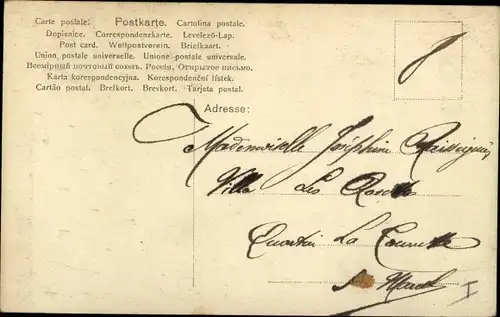 Carte postale. Postkarte. Cartolina postale.
Dopisnice. Correspondenzkarte. Levelező-Lap.
Post card. Weltpostverein. Briefkaart.
Union postale universelle. Unione postale universale.
Всемірный почтовый союзъ. Россія. Открытое письмо.
Karta korespondencyjna. Korespondenční lístek.
Cartão postal. Brefkort. Brevkort. Tarjeta postal.
Adresse:
Mademoiselle Joséphine
Villa Les
Quartier La
St Marcel
I